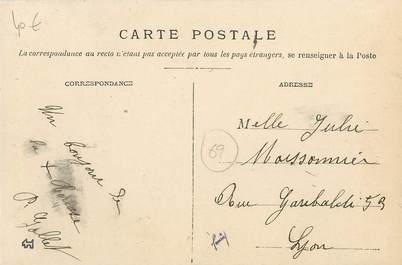 40 €
CARTE POSTALE
La correspondance au recto n'étant pas acceptée par tous les pays étrangers, se renseigner à la Poste
CORRESPONDANCE
Un bonjour de
la +
P.
ADRESSE
Melle Julie
Moissonnier
Rue Garibaldi 59
Lyon
69